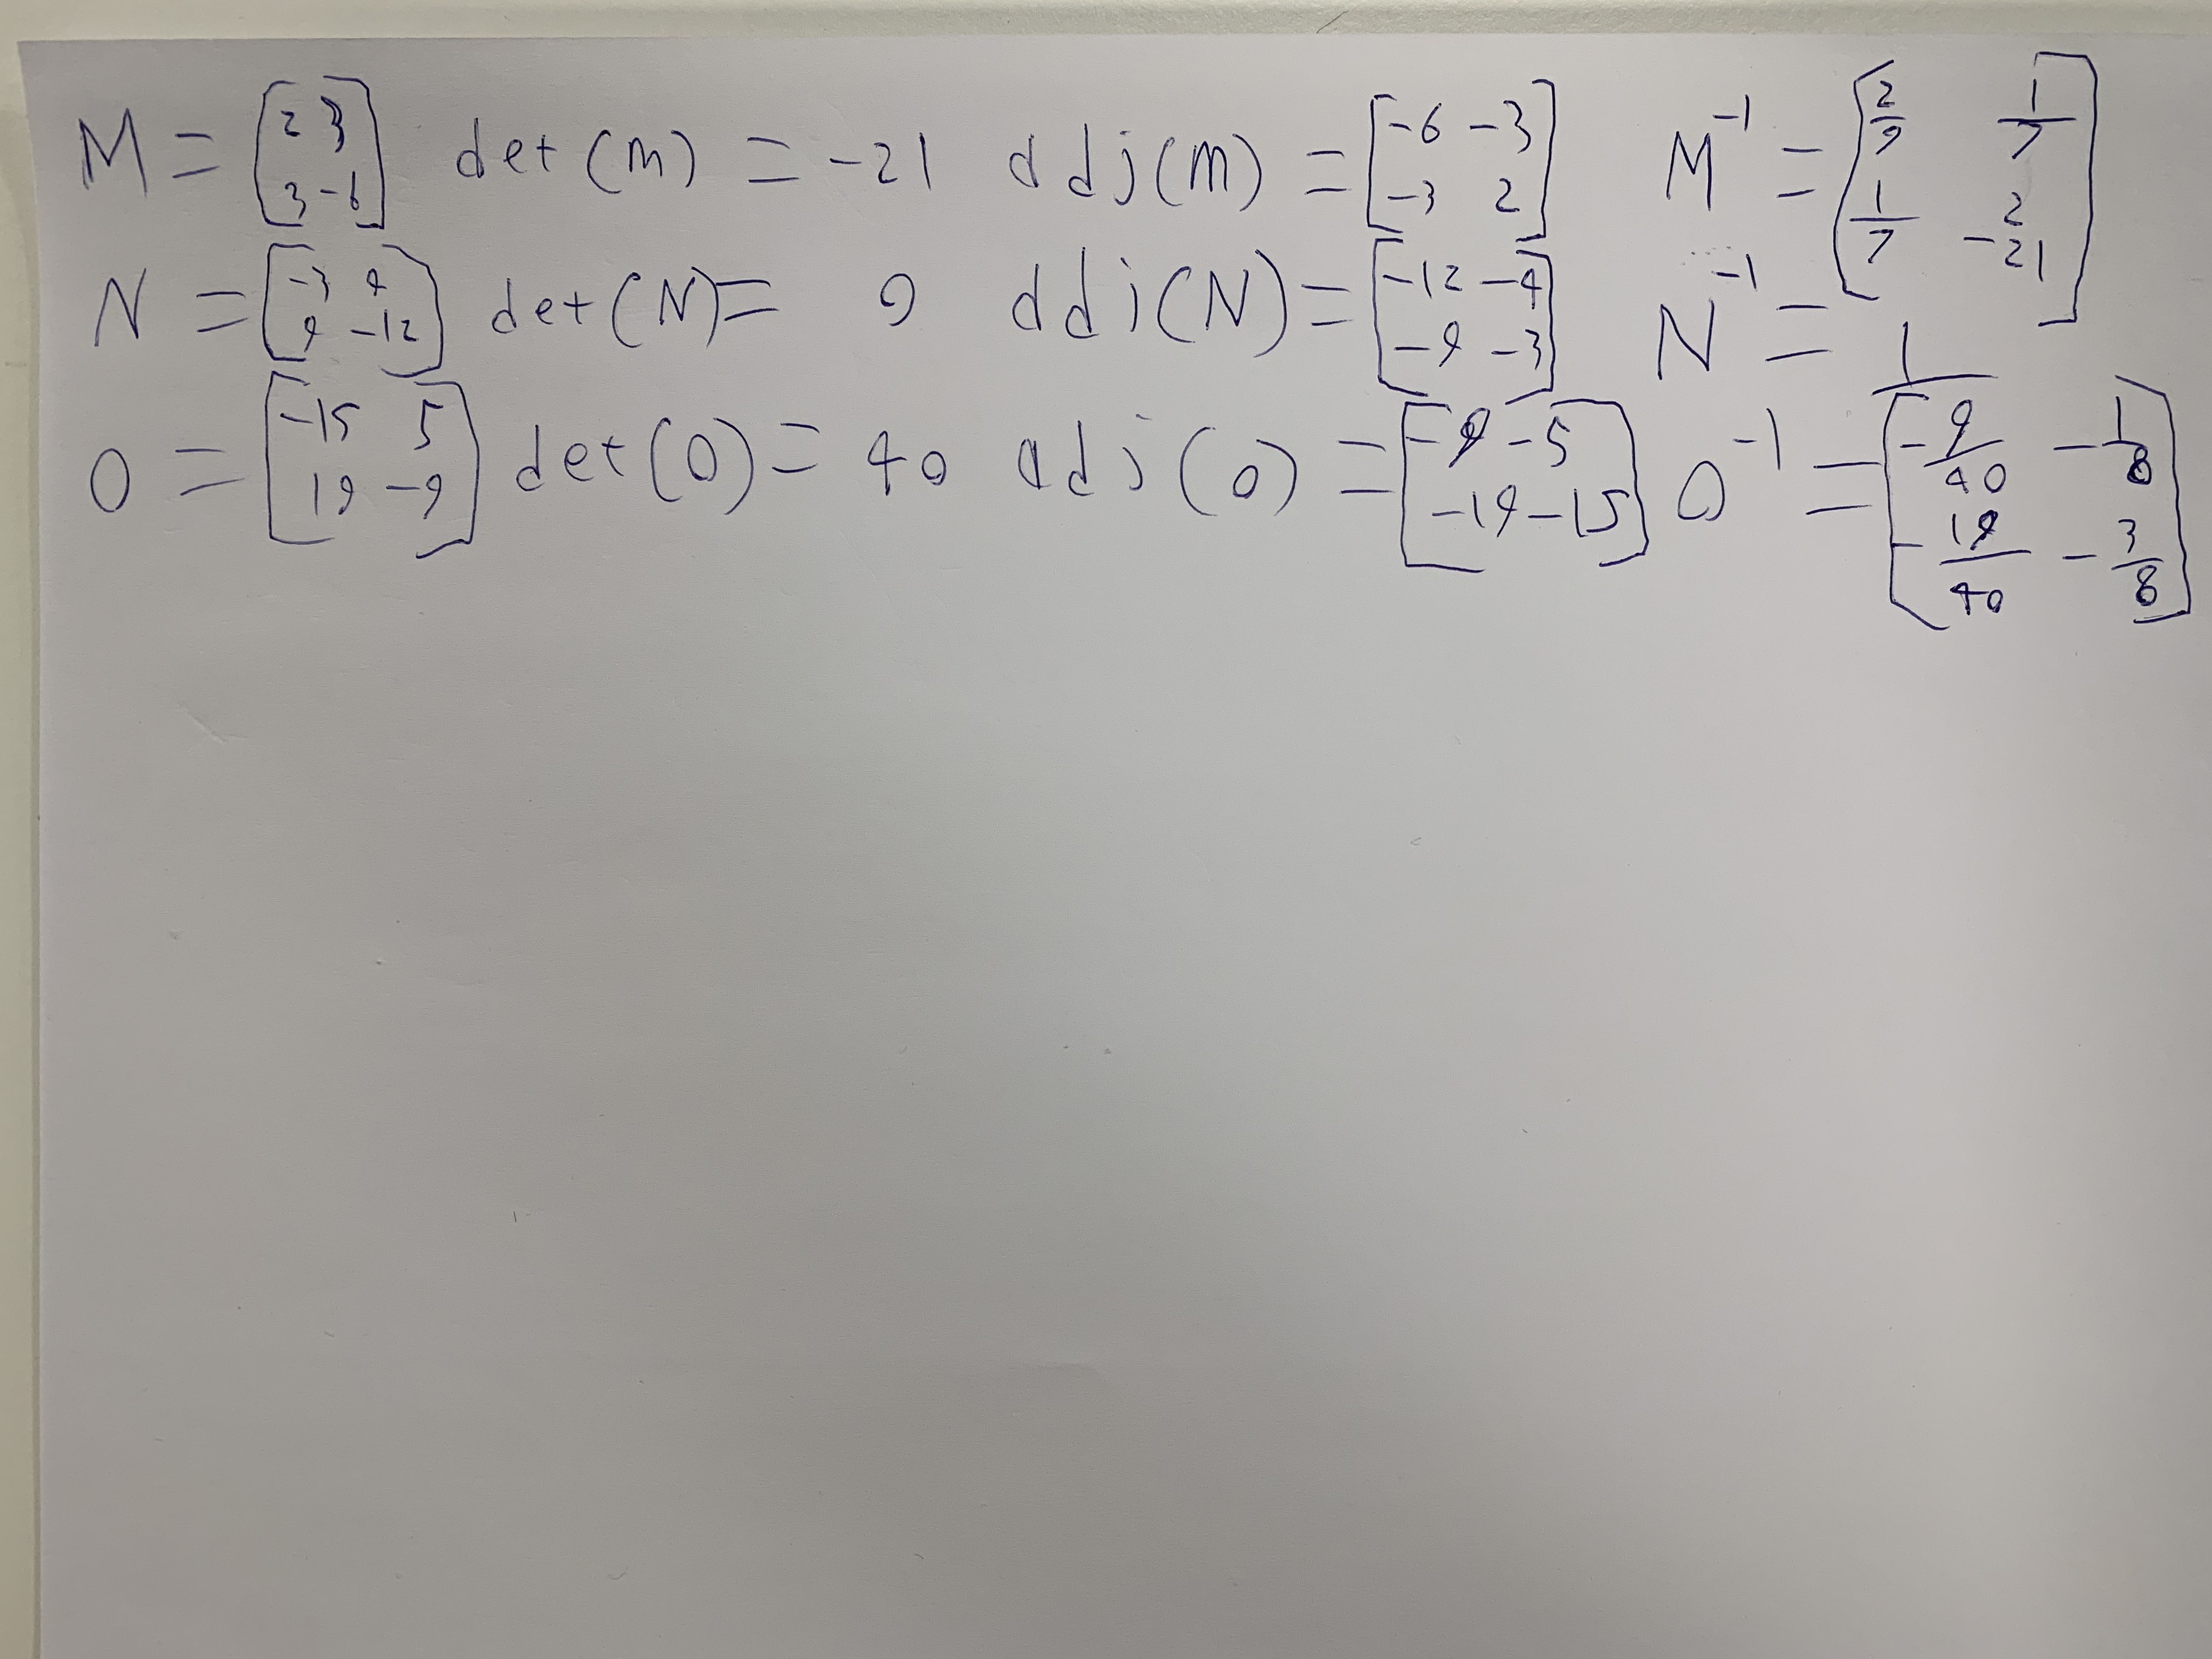 M = [2 3; 3 -6] det(m) = -21 adj(m) = [-6 -3; -3 2] M^-1 = [2/7 1/7; 1/7 -2/21]
N = [-3 9; 9 -12] det(N) = 0 adj(N) = [-12 -4; -9 -3] N^-1 = 1/
O = [-15 5; 19 -9] det(O) = 40 adj(O) = [-9 -5; -19 -15] O^-1 = [-9/40 -1/8; -19/40 -3/8]